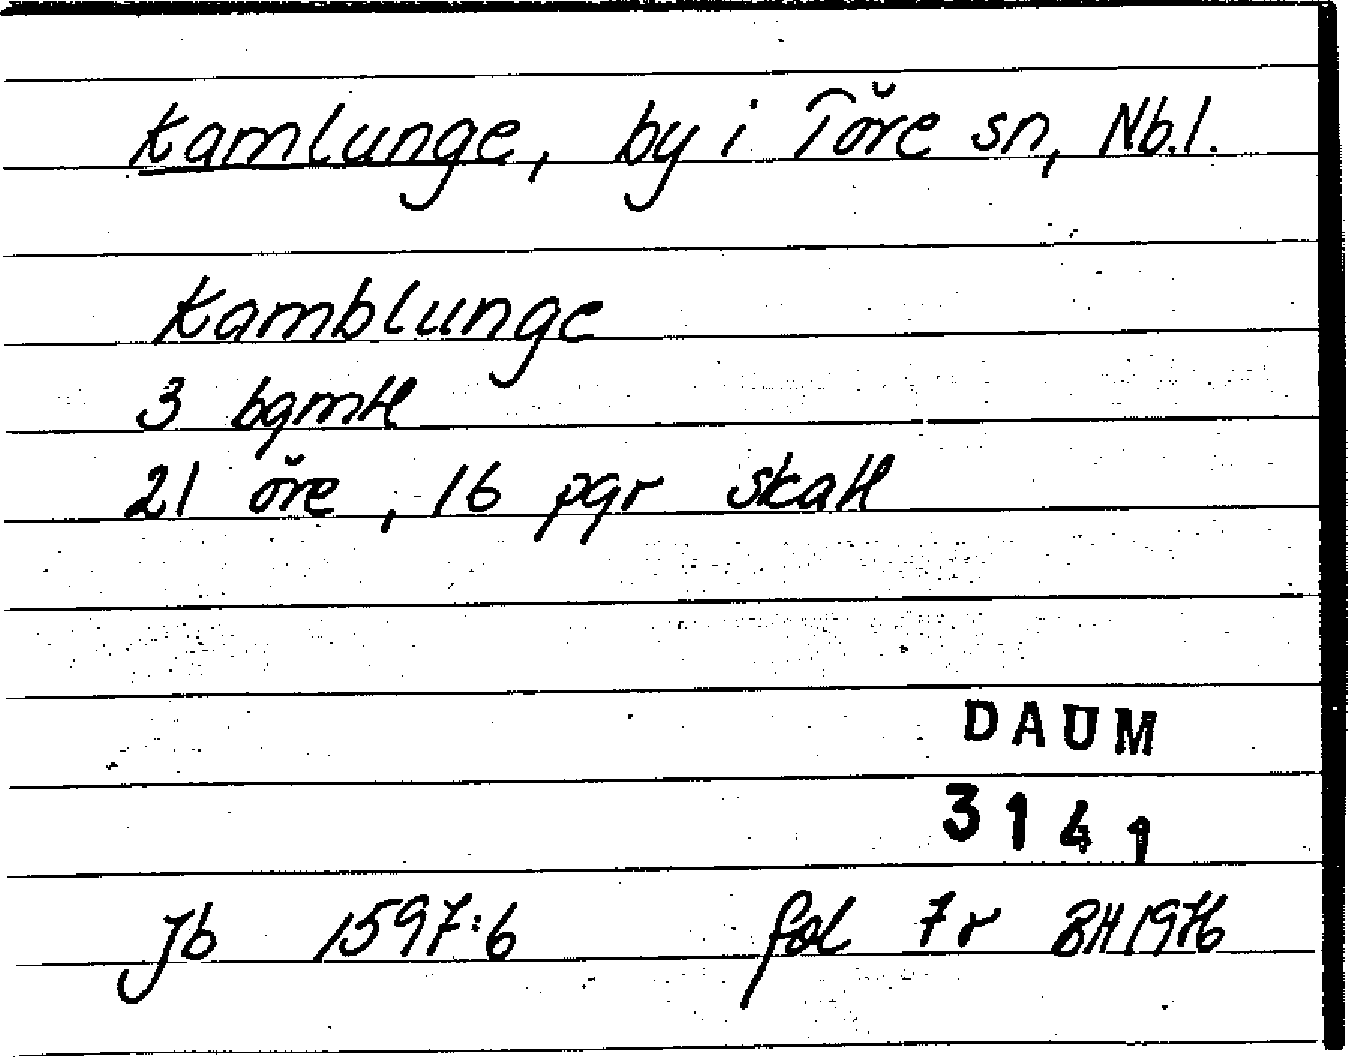 Kamlunge, by i Töre sn, Nb.l.
Kamblunge
3 bgmtl
21 öre, 16 pgr skatt
DAUM
3141
Jb 1597:6 fol 7r BH 1976